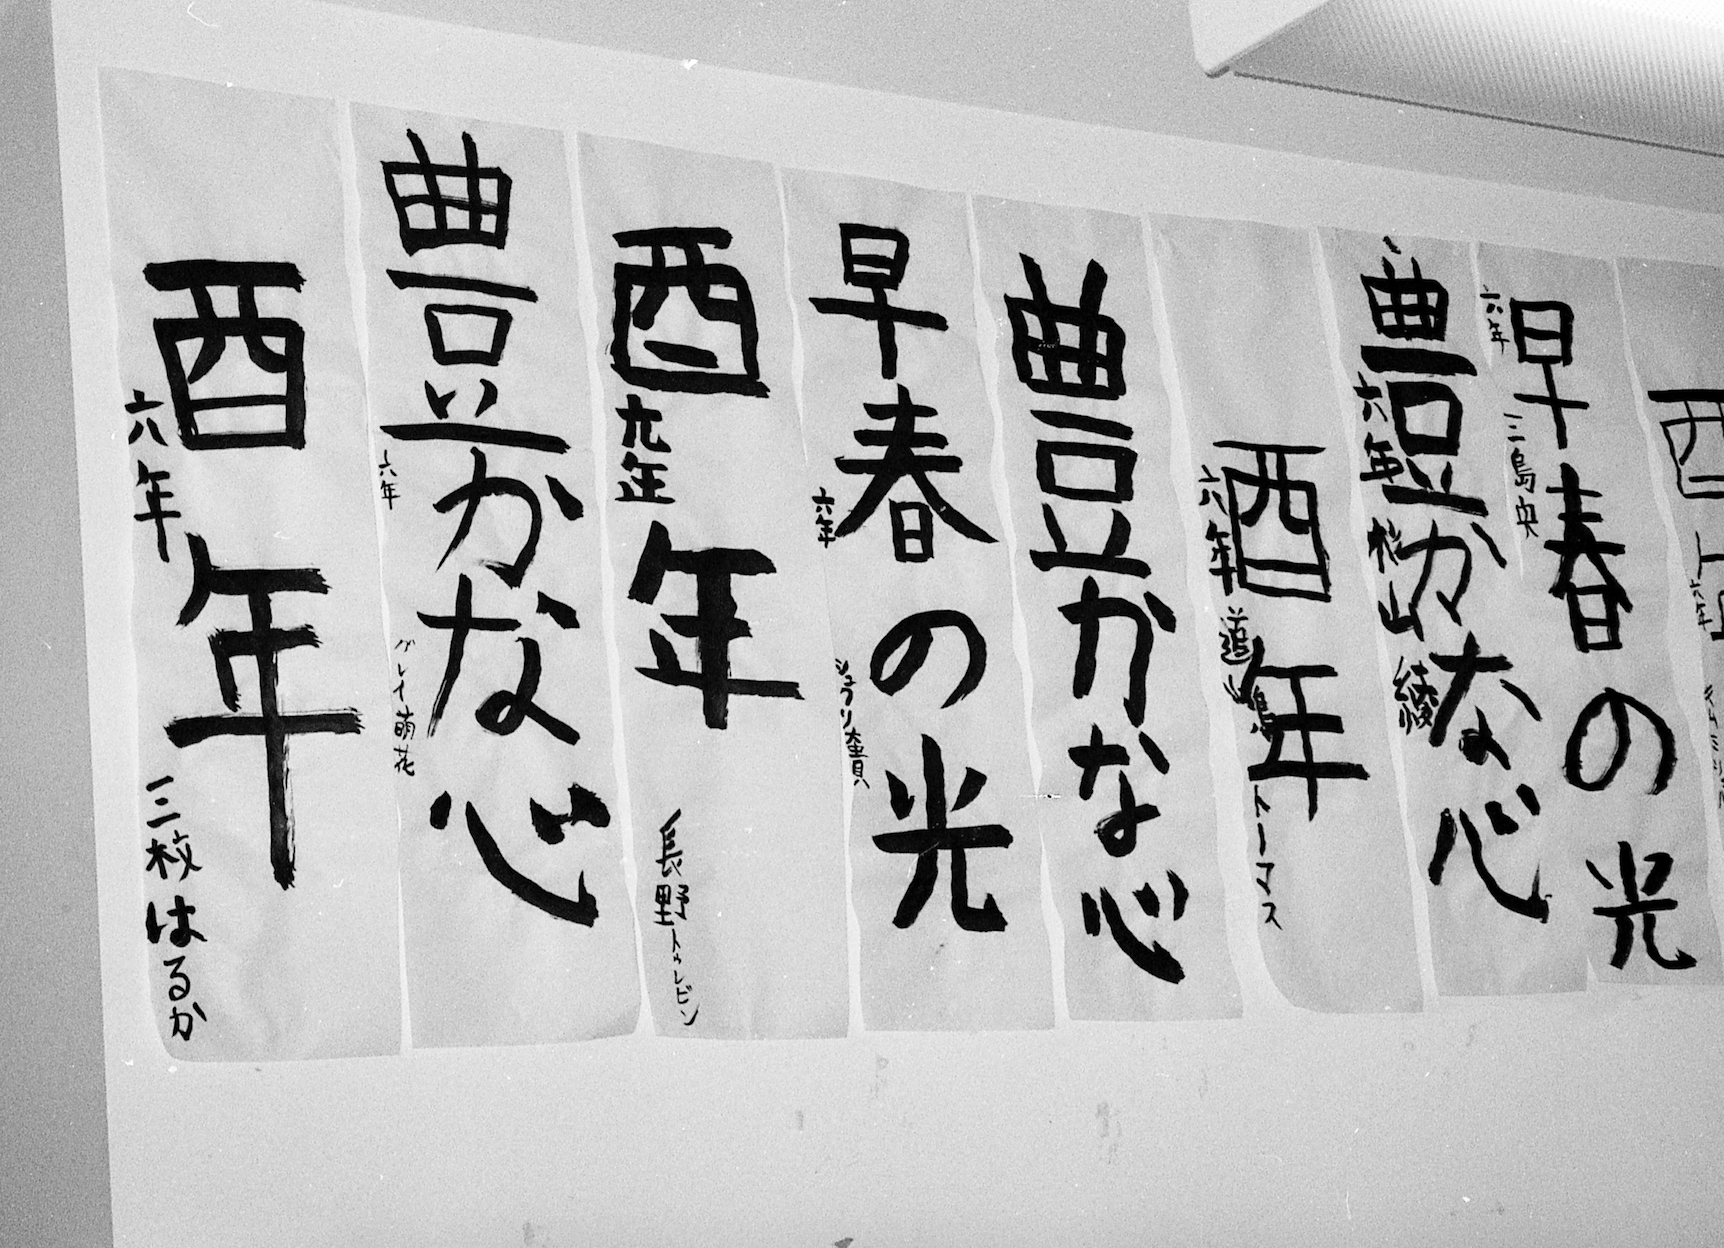 酉年
六年
三枚はるか
豊かな心
六年
グレイ萌花
酉年
九年
長野トゥレビン
早春の光
六年
豊かな心
酉年
六年
トーマス
豊かな心
六年
綾
早春の光
六年
三島央
酉
六年